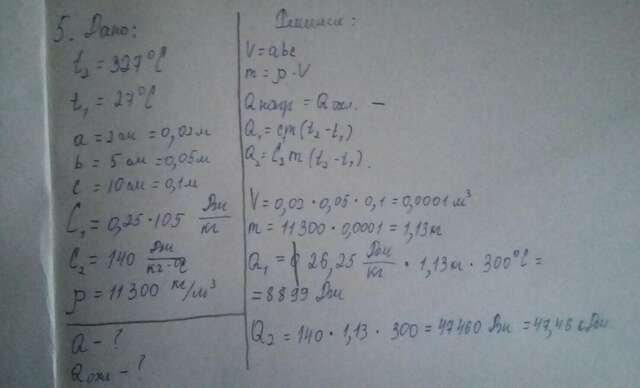 5. Дано:
t₂ = 327°C
t₁ = 27°C
a = 2см = 0,02м
b = 5см = 0,05м
c = 10см = 0,1м
C₁ = 0,25·105 Дж/кг
C₂ = 140 Дж/кг·°C
ρ = 11300 кг/м³
Q - ?
Qохл - ?
Решение:
V = abc
m = ρ·V
Qнагр = Qохл. —
Q₁ = cm(t₂-t₁)
Q₂ = C₂m(t₂-t₁).
V = 0,02·0,05·0,1 = 0,0001м³
m = 11300·0,0001 = 1,13кг
Q₁ = 26,25 Дж/кг · 1,13кг · 300°C =
= 8899 Дж
Q₂ = 140·1,13·300 = 47460 Дж = 47,48 кДж